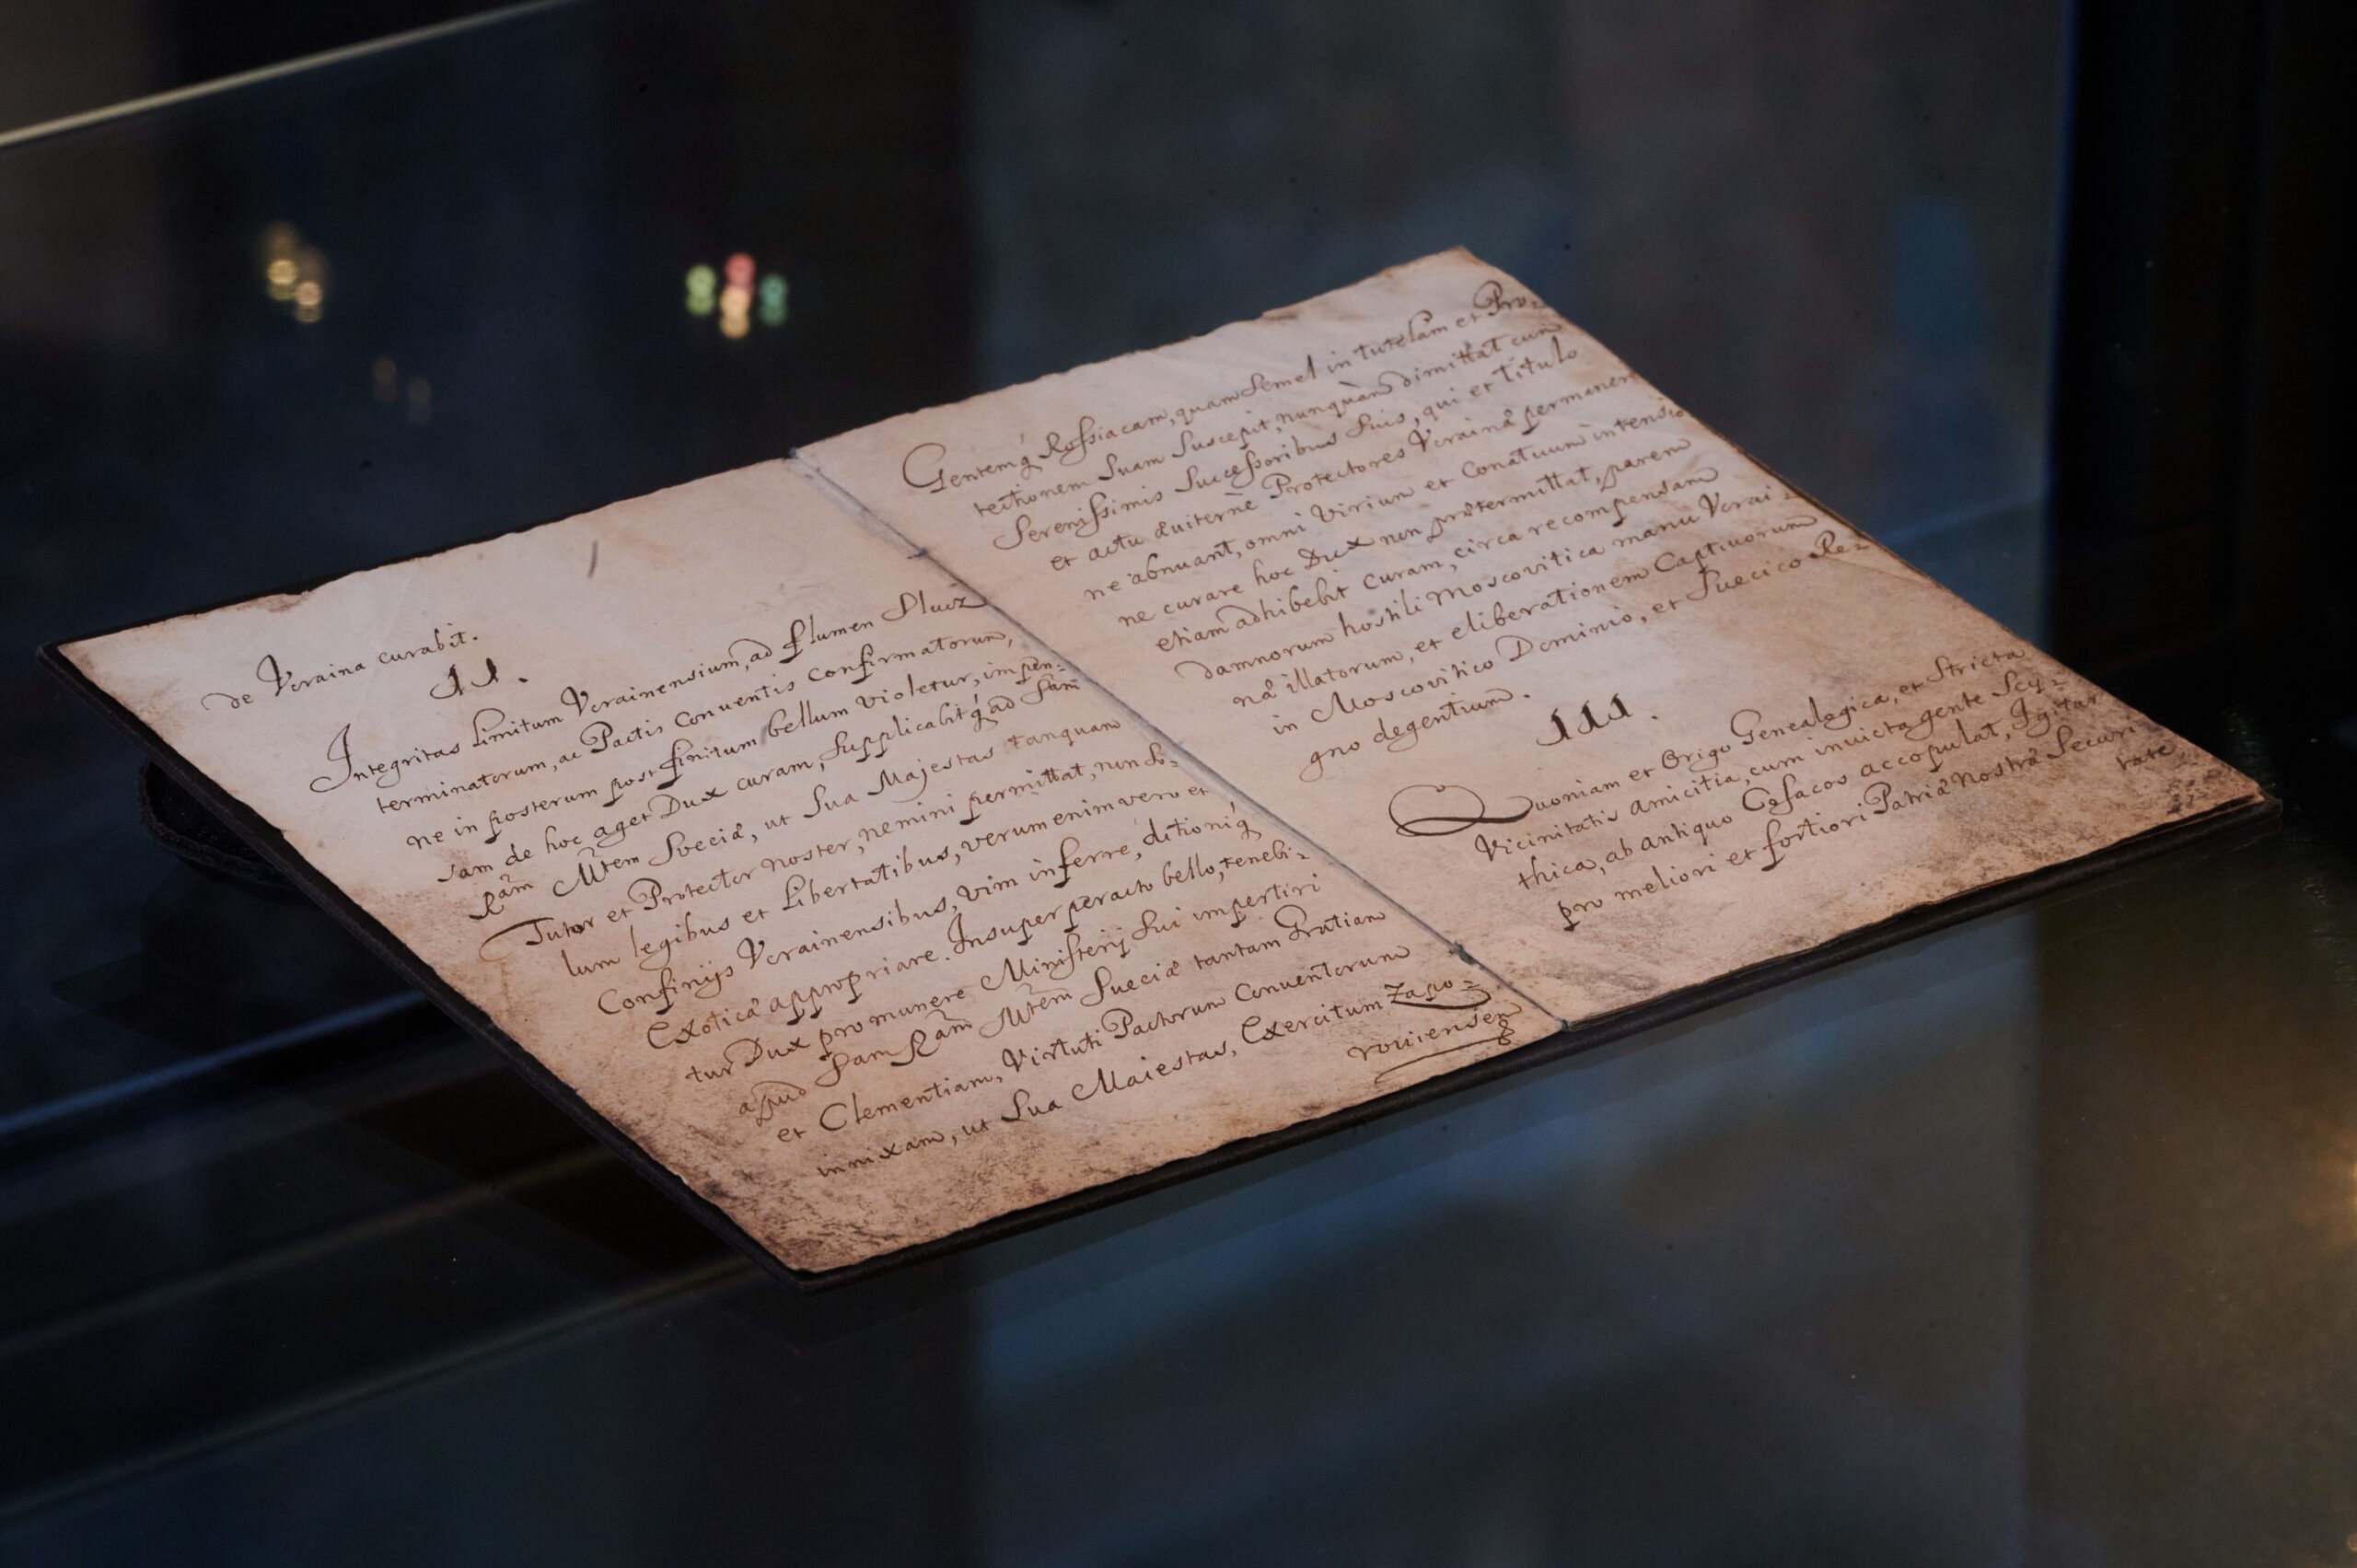 de Vcraina curabit.
II.
Integritas Limitum Vcrainensium, ad flumen Slucz
terminatorum, ac Pactis Conuentis confirmatorum,
ne in posterum post finitum bellum violetur, impen=
sam de hoc aget Dux curam, supplicabitq́ ad Sām
Rām Mtem Sveciæ, ut Sua Majestas tanquam
Tutor et Protector noster, nemini permittat, non so=
lum legibus et Libertatibus, verumenimvero et
Confinijs Vcrainensibus, vim inferre, ditioniq́
Exoticæ appropriare. Insuper peracto bello, tenebi=
tur Dux pro munere Ministerij sui impertiri
apud Sam Rām Mtēm Sueciæ tantam Gratiam
et Clementiam, Virtuti Pactorum Conuentorum
innixam, ut Sua Maiestas, Exercitum Zapo=
rouiensem
Gentemq́ Rossiacam, quam semel in tutelam et Pro=
tectionem Suam suscepit, nunquàm dimittat cum
Serenissimis Successoribus suis, qui et titulo
et actu æuiternè Protectores Vcrainæ permanere
ne abnuant, omni Virium et Conatuum intensio
ne curare hoc Dux non prætermittat, parem
etiam adhibebit curam, circa recompensam
damnorum hostili Moscovitica manu Vcrai=
næ illatorum, et eliberationem Captiuorum
in Moscovitico Dominio, et Suecico Re=
gno degentium.
III.
Quoniam et Origo Genealogica, et Stricta
Vicinitatis amicitia, cum inuicta gente Scy=
thica, ab antiquo Cosacos accopulat, Igitur
pro meliori et fortiori Patriæ nostræ Securi
tate